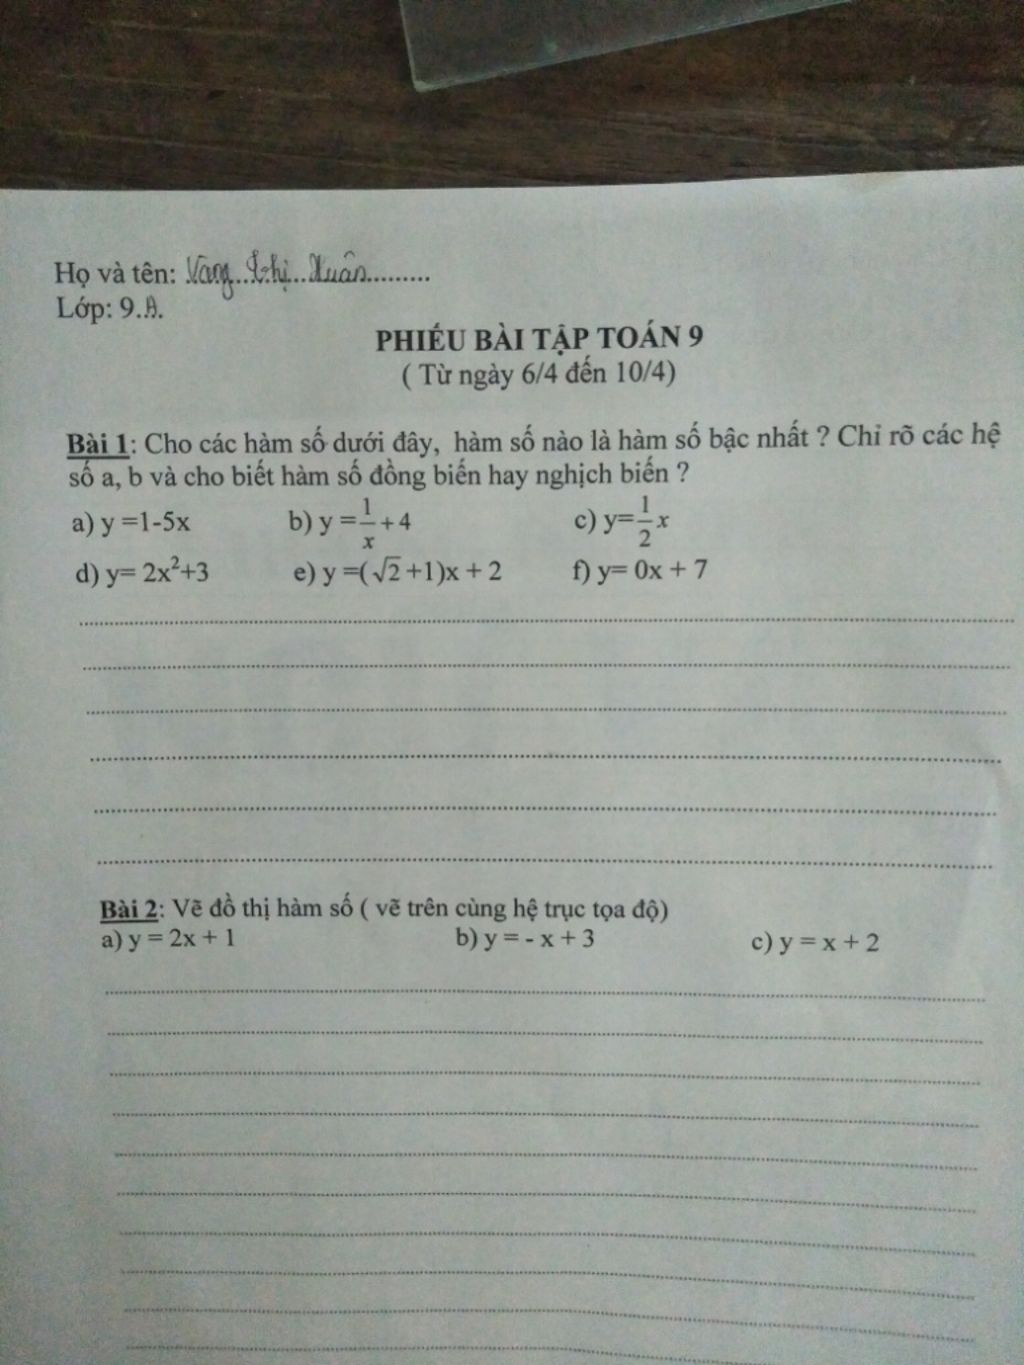 Họ và tên: Vàng Thị Xuân
Lớp: 9.A.
PHIẾU BÀI TẬP TOÁN 9
( Từ ngày 6/4 đến 10/4)
Bài 1: Cho các hàm số dưới đây, hàm số nào là hàm số bậc nhất ? Chỉ rõ các hệ
số a, b và cho biết hàm số đồng biến hay nghịch biến ?
a) y =1-5x b) y =1/x + 4 c) y=1/2 x
d) y= 2x²+3 e) y =(√2+1)x + 2 f) y= 0x + 7
Bài 2: Vẽ đồ thị hàm số ( vẽ trên cùng hệ trục tọa độ)
a) y = 2x + 1 b) y = - x + 3 c) y = x + 2